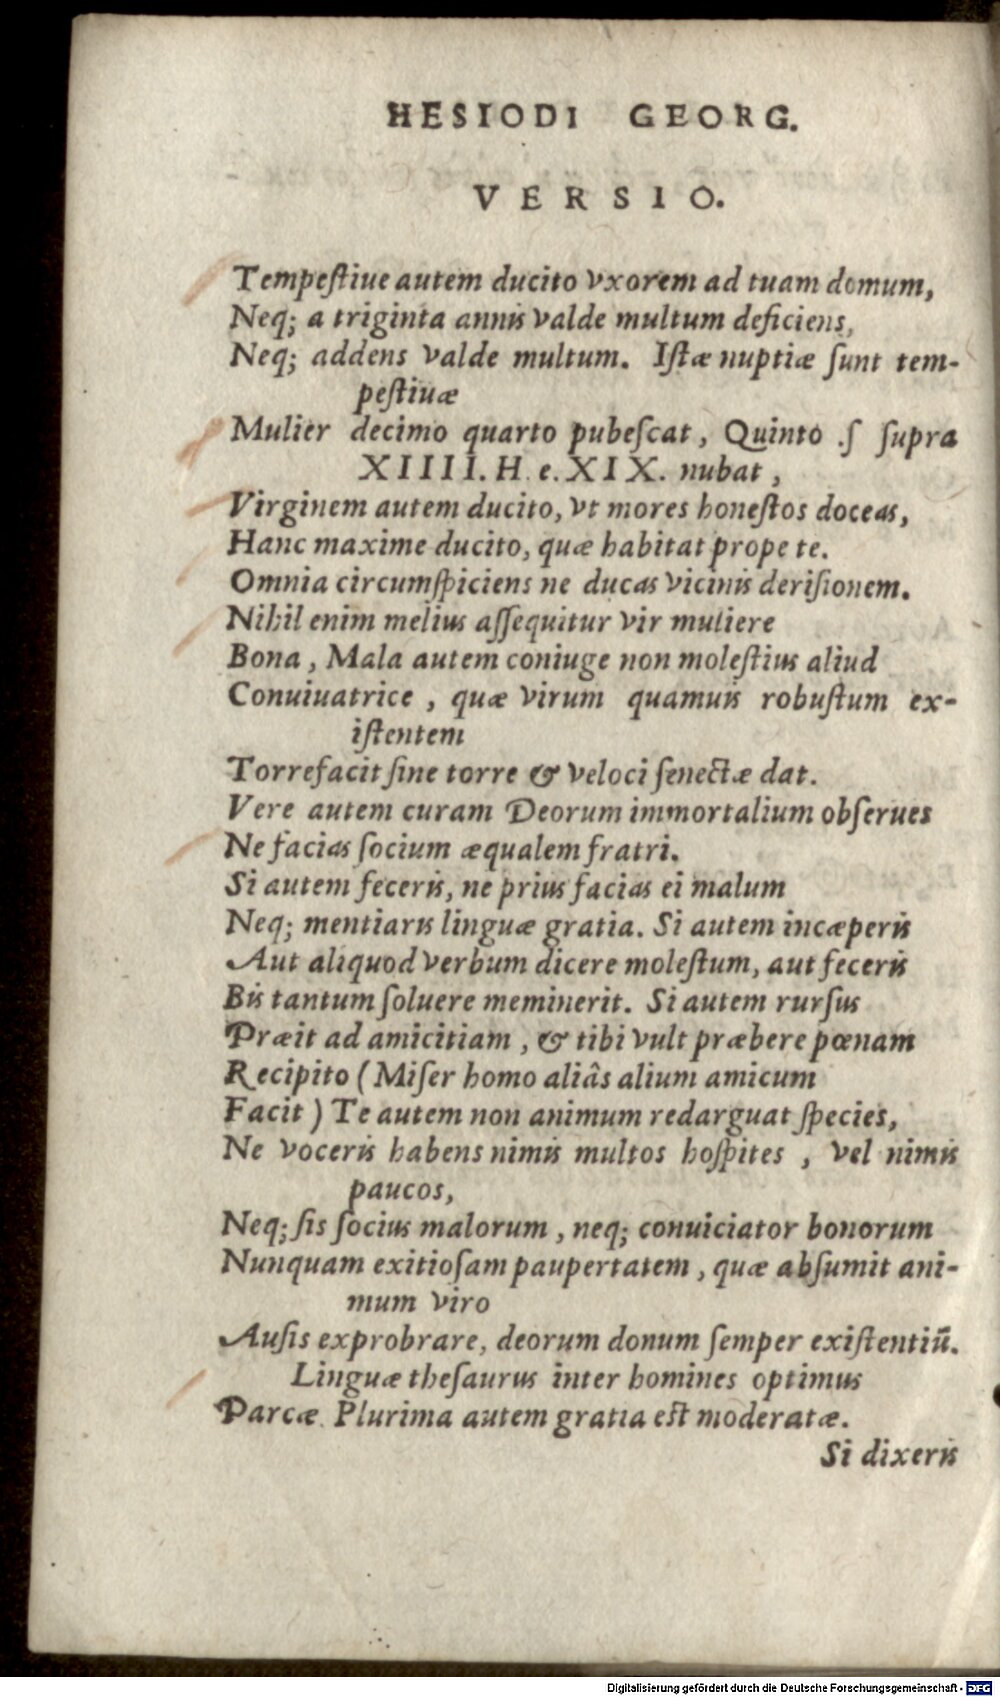 HESIODI GEORG.
VERSIO.
Tempeſtiue autem ducito vxorem ad tuam domum,
Neq; a triginta annis valde multum deficiens,
Neq; addens valde multum. Iſtæ nuptiæ ſunt tem-
peſtiuæ
Mulier decimo quarto pubeſcat, Quinto .ſ ſupra
XIIII. H. e. XIX. nubat,
Virginem autem ducito, vt mores honeſtos doceas,
Hanc maxime ducito, quæ habitat prope te.
Omnia circumſpiciens ne ducas vicinis deriſionem.
Nihil enim melius aſſequitur vir muliere
Bona, Mala autem coniuge non moleſtius aliud
Conuiuatrice, quæ virum quamuis robuſtum ex-
iſtentem
Torrefacit ſine torre & veloci ſenectæ dat.
Vere autem curam Deorum immortalium obſerues
Ne facias ſocium æqualem fratri.
Si autem feceris, ne prius facias ei malum
Neq; mentiaris linguæ gratia. Si autem incæperis
Aut aliquod verbum dicere moleſtum, aut feceris
Bis tantum ſoluere meminerit. Si autem rurſus
Præit ad amicitiam, & tibi vult præbere pœnam
Recipito (Miſer homo aliâs alium amicum
Facit) Te autem non animum redarguat ſpecies,
Ne voceris habens nimis multos hoſpites, vel nimis
paucos,
Neq; ſis ſocius malorum, neq; conuiciator bonorum
Nunquam exitioſam paupertatem, quæ abſumit ani-
mum viro
Auſis exprobrare, deorum donum ſemper exiſtentiū.
Linguæ theſaurus inter homines optimus
Parcæ. Plurima autem gratia eſt moderatæ.
Si dixeris
Digitalisierung gefördert durch die Deutsche Forschungsgemeinschaft - DFG